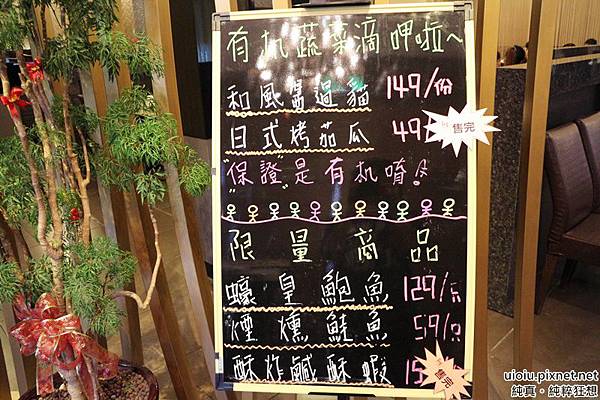 有机蔬菜滴呷啦~
和風醬過貓 149/份
日式烤茄瓜 49
售完
"保證"是有机唷!
限量商品
蠔皇鮑魚 129/
煙燻鮭魚 59/
酥炸鹹酥蝦 15
售完
uioiu.pixnet.net
純真・純粹狂想